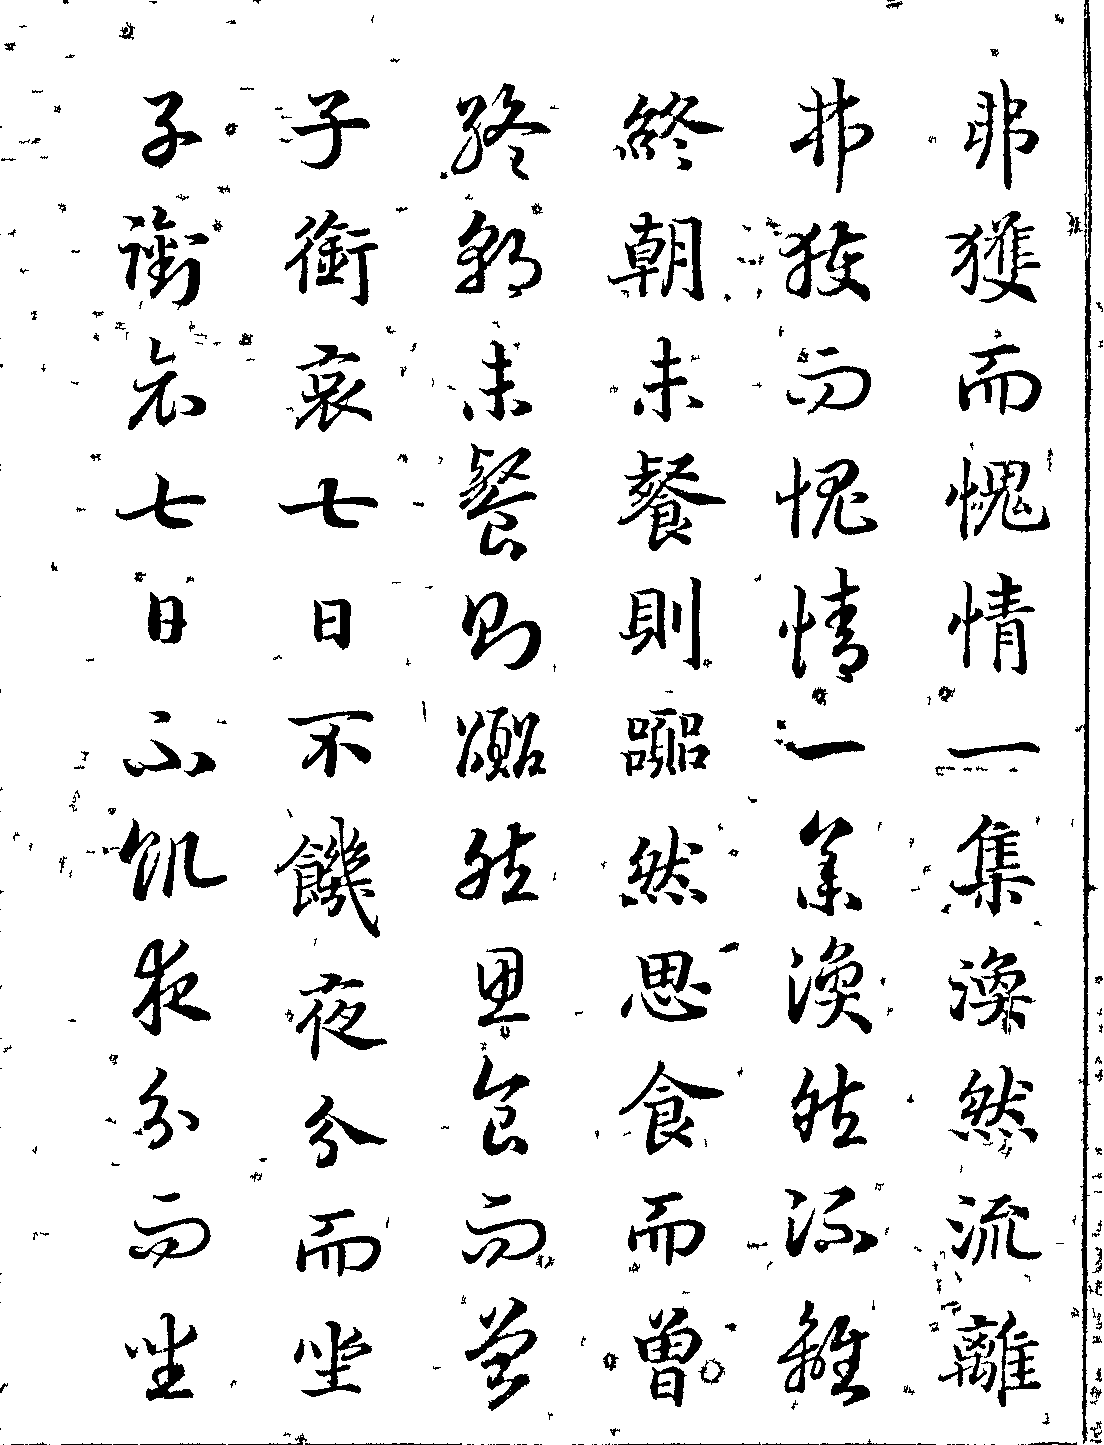 弗獲而愧情一集渙然流離
弗獲而愧情一集渙然流離
終朝未餐則囂然思食而曾
終朝未餐則囂然思食而曾
子銜哀七日不饑夜分而坐
子銜哀七日不饑夜分而坐